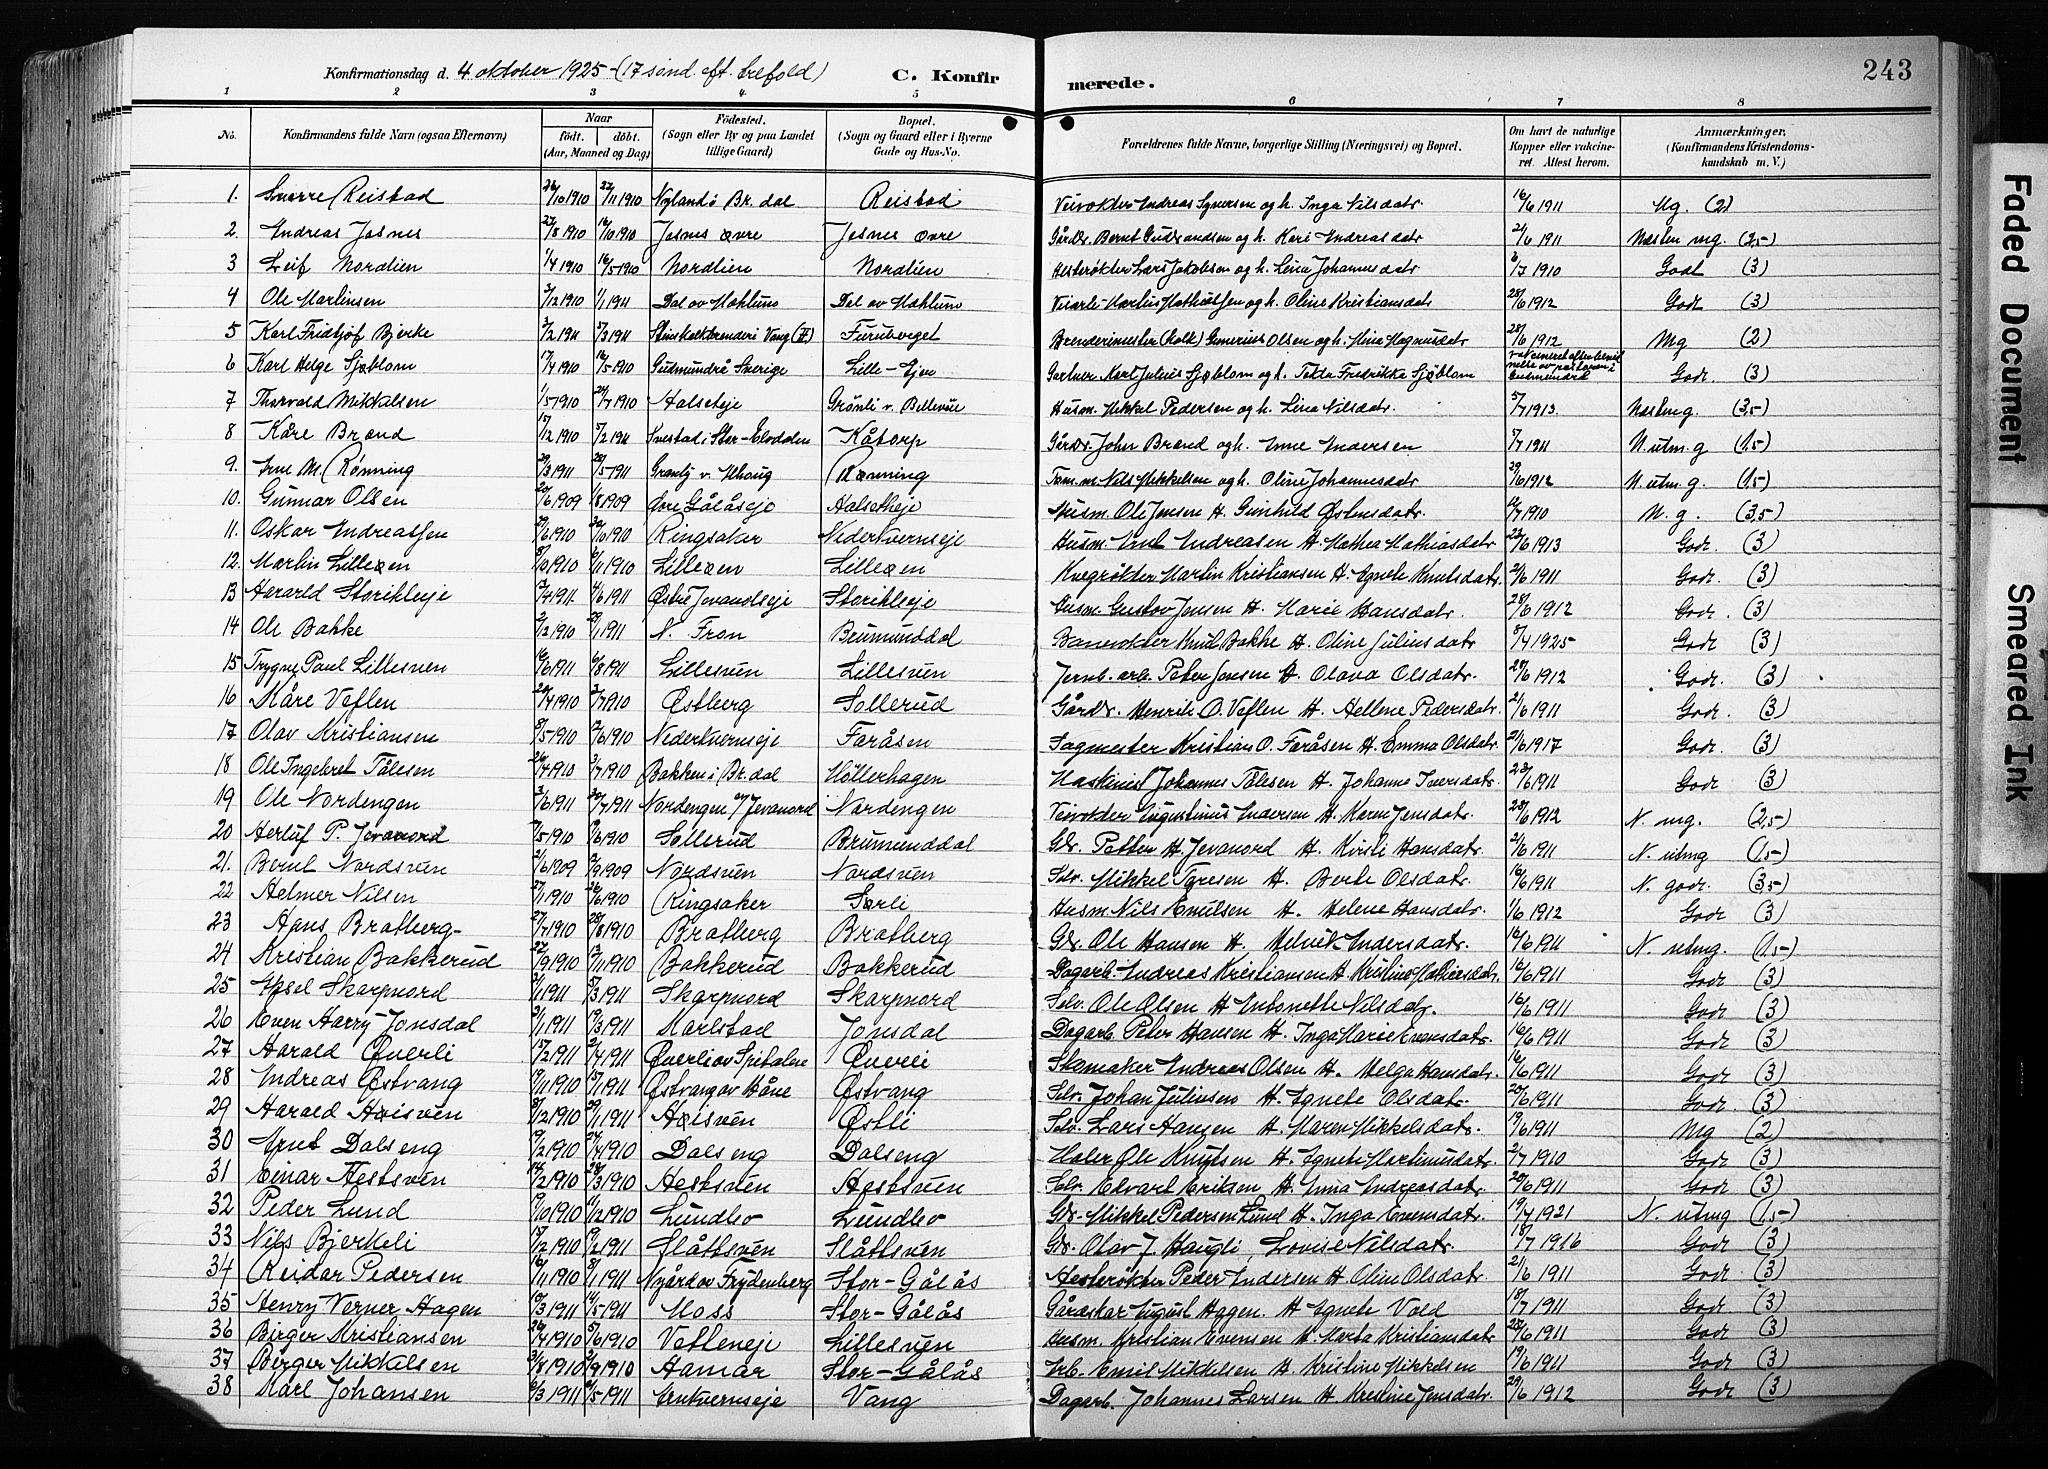 243
Konfirmationsdag d. 4 oktober 1925 - (17 sønd. eft. trefold)
C. Konfirmerede.
1 2 3 4 5 6 7 8
No. Konfirmandens fulde Navn (ogsaa Efternavn) Naar født. døbt. (Aar, Maaned og Dag) Fødested. (Sogn eller By og paa Landet tillige Gaard) Bopæl. (Sogn og Gaard eller i Byerne Gade og Hus-No. Forældrenes fulde Navne, borgerlige Stilling (Næringsvei) og Bopæl. Om havt de naturlige Kopper eller vakcineret. Attest herom. Anmærkninger. (Konfirmandens Kristendomskundskab m. V.)
1. Snorre Reistad 26/10 1910 22/11 1910 Nyland i Br.dal Reistad Veivokter Andreas Syversen og h. Inga Nilsdatr. 16/6 1911 Mg. (2)
2. Andreas Jesnes 27/8 1910 16/10 1910 Jesnes øvre Jesnes øvre Gårdbr. Bernt Gudbrandsen og h. Kari Andreasdatr 21/6 1911 Næsten mg. (2,5)
3 Leif Nordlien 1/4 1910 16/5 1910 Nordlien Nordlien Hesterøkter Lars Jakobsen og h. Lina Johannesdatr 6/7 1910 Godt (3)
4 Ole Martinsen 3/12 1910 1/1 1911 Dal av Mæhlum Dal av Mæhlum Veiarb. Martin Mathiassen og h. Oline Kristiansdatr 28/6 1912 Godt (3)
5 Karl Fridtjof Bjerke 3/2 1911 5/3 1911 Stenskalkbrenderi Vang (H.) Furubverget Brenderimester (kalk) Gunerius Olsen og h. Mina Magnusdatr 28/6 1912 Mg (2)
6 Karl Helge Sjøblom 17/4 1910 16/5 1910 Gudmundrå Sverige Lille-Ejer Gartner Karl Julius Sjøblom og h. Tekla Fredrikka Sjøblom Godt. (3)
7 Thorvald Mikkelsen 1/5 1910 24/7 1910 Halseteje Grønli v. Bellevue Husm. Mikkel Pedersen og h. Lina Nilsdatr. 5/7 1913. Næsten g. (3,5)
8 Kåre Brænd 17/12 1910 5/2 1911 Svestad i Stor-Elvdalen Kåtorp Gårdbr. John Brænd og h. Anne Andersen 5/7 1911 N. utm. g (1,5)
9. Arne M. Rønning 29/3 1911 28/5 1911 Granly v. Ulhaug Rønning Tom.m. Nils Mikkelsen og h. Oline Johannesdatr 29/6 1912 N. utm. g. (1,5)
10. Gunnar Olsen 20/6 1909 1/8 1909 Øvre Gålåseje Halseteje Husm. Ole Jensen H. Gunhild Østensdatr. 12/7 1910 N. g. (3,5)
11. Oskar Andreassen 29/6 1910 30/10 1910 Ringsaker Nederkvernseje Husm. Emil Andreasen H. Mathea Mathiasdatr 23/6 1913 Godt. (3)
12. Martin Lilleøen 8/10 1910 6/11 1910 Lilleøen Lilleøen Kvegrøkter Martin Kristiansen H. Agnete Knutsdatr. 21/6 1911 Godt. (3)
13 Harald Storihleje 17/4 1911 4/6 1911 Østre Jevanordseje Storihleje Husm. Gustav Jensen H. Marie Hansdatr. 28/6 1912 Godt. (3)
14 Ole Bakke 2/12 1910 29/1 1911 N. Fron Brumunddal Banevokter Knut Bakke H. Oline Juliusdatr 3/4 1925 Godt (3)
15 Trygve Paul Lillesven 16/6 1911 6/8 1911 Lillesven Lillesven Jernb. arb. Peter Jensen H. Olava Olsdatr. 28/6 1912 Godt. (3)
16 Kåre Veflen 20/4 1910 3/7 1910 Østberg Sollerud Gårdbr. Henrik O. Veflen H. Hellene Pedersdatr 21/6 1911 Godt. (3)
17 Olav Kristiansen 8/5 1910 12/6 1910 Nederkvernseje Faråsen Sagmester Kristian O. Faråsen H. Emma Olsdatr. 21/6 1917 Godt. (3)
18 Ole Ingebret Tålesen 26/4 1910 3/7 1910 Bakken i Br.dal Holterhagen Maskinist Johannes Tålesen H. Johanne Iversdatr 23/6 1911 Godt (3)
19 Ole Nordengen 3/6 1911 30/7 1911 Nordengen av Jevanord Nordengen Veivokter Augustinus Andersen H. Karen Jensdatr. 28/6 1912 N. mg. (2,5)
20 Herluf P. Jevanord 17/5 1910 19/6 1910 Sollerud Brumunddal Gbr. Petter H. Jevanord H. Kirsti Hansdatr. 21/6 1911 N. utmg (1,5)
21. Bernt Nordsven 21/6 1909 12/9 1909 Nordsven Nordsven Selv. Mikkel Toresen H. Berte Olsdatr. 16/6 1911 N. godt. (3,5)
22 Helmer Nilsen 27/1 1910 26/6 1910 Ringsaker Sørli Husm. Nils Emilsen H. Helene Hansdatr. 1/6 1912 Godt (3)
23 Hans Bratberg 27/7 1910 28/8 1910 Bratberg Bratberg Gbr. Ole Hansen H. Helvik Andersdatr. 16/6 1911 N. utmg. (1,5)
24 Kristian Bakkerud 22/9 1910 13/11 1910 Bakkerud Bakkerud Dagarb. Andreas Kristiansen H. Kristine Mathiasdatr. 16/6 1911 Godt (3)
25 Aksel Skarpnord 21/1 1911 5/3 1911 Skarpnord Skarpnord Selv. Ole Olsen H. Antonette Nilsdatr. 16/6 1911 Godt (3)
26 Even Harry Jonsdal 31/1 1911 19/3 1911 Karlstad Jonsdal Dagarb. Peter Hansen H. Inga Marie Evensdatr. 16/6 1911 Godt (3)
27 Harald Øverli 15/2 1911 2/4 1911 Øverli av Spitalen Øverli Skomaker Andreas Olsen H. Helga Hansdatr. 16/6 1911 Godt (3)
28 Andreas Østvang 19/11 1910 15/1 1911 Østvang av Håve Østvang Selv. Johan Juliussen H. Agnete Olsdatr. 20/6 1911 Godt. (3)
29 Harald Høisven 8/12 1910 29/1 1911 Høisven Østli Selv. Lars Hansen H. Maren Mikkelsdatr. 19/6 1911 Mg (2)
30 Arnt Dalseng 19/2 1910 24/4 1910 Dalseng Dalseng Maler Ole Knutsen H. Agnete Martinusdatr. 2/7 1910 Godt (3)
31 Einar Hestsven 14/2 1910 28/3 1910 Hestsven Hestsven Selv. Edvart Eriksen H. Anna Andreasdatr. 20/6 1911 Godt (3)
32 Peder Lund 19/10 1910 11/12 1910 Lundbo Lundbo Gbr. Mikkel Pedersen Lund H. Inga Evensdatr. 19/4 1921 N. utmg (1,5)
33 Nils Bjerkeli 15/12 1910 19/2 1911 Slåttsven Slåttsven Gbr. Olav J. Haugli, Lovise Nilsdatr. 18/7 1916 Godt (3)
34 Reidar Pedersen 16/11 1910 8/1 1911 Nygård av Frydenberg Stor-Gålås Hesterøkter Peder Andersen H. Oline Olsdatr. 21/6 1911 Godt (3)
35 Henry Verner Hagen 10/3 1911 14/5 1911 Moss Stor-Gålås Gårdskar August Hagen H. Agnete Vold 18/7 1911 Godt (3)
36 Birger Kristiansen 26/4 1910 5/6 1910 Vetteneje Lillesven Husm. Kristian Evensen H. Marta Kristiansdatr 28/6 1911 Godt (3)
37 Birger Mikkelsen 3/8 1910 2/9 1910 Hamar Stor-Gålås Arb. Emil Mikkelsen H. Kristine Mikkelsen 19/6 1911 Godt (3)
38 Karl Johansen 6/3 1911 6/5 1911 Arnkvernseje Vang Dagarb. Johannes Larsen H. Kristine Jensdatr. 29/6 1912 Godt (3)
Faded Document
Smeared Ink